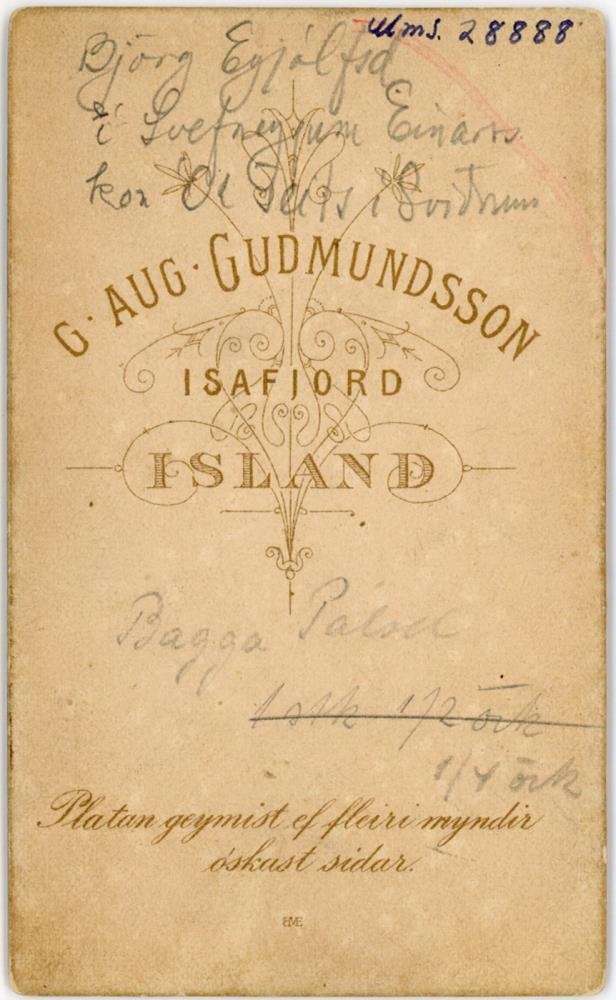 Mms. 28888
Björg Eyjólfsd
í Svefneyjum Einars
kon Ol Teits í Sviðnum
G. AUG. GUDMUNDSSON
ISAFJORD
ISLAND
Bagga Palsd
1 stk 1/2 örk
1/4 örk
Platan geymist ef fleiri myndir
óskast sidar.